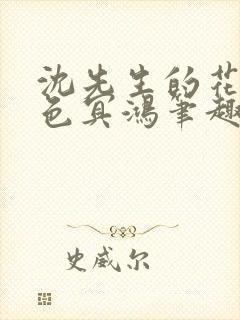 沈先生的花
色冥鸿笔趣
史威尔